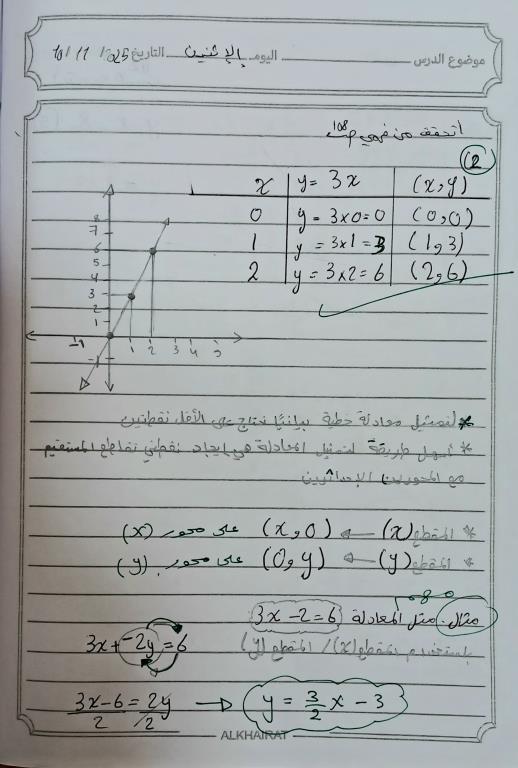 موضوع الدرس اليوم الإثنين التاريخ 10/11/2025
أتحقق من فهمي ص108
(2)
x | y = 3x | (x,y)
0 | y = 3x0=0 | (0,0)
1 | y = 3x1=3 | (1,3)
2 | y = 3x2=6 | (2,6)
8
7
6
5
4
3
2
1
-1 1 2 3 4 5
-1
* لتمثيل معادلة خطية بيانيًا نحتاج على الأقل نقطتين
* أسهل طريقة لتمثيل المعادلة هي إيجاد نقطتي تقاطع المستقيم
مع المحورين الإحداثيين
* المقطع (x) ← (x,0) على محور (x)
* المقطع (y) ← (0,y) على محور (y)
مثال: مثل المعادلة 3x-2=6
باستخدام المقطع (x) / المقطع (y)
3x+-2y=6
3x-6=2y → y = 3/2 x - 3
2 2
ALKHAIRAT